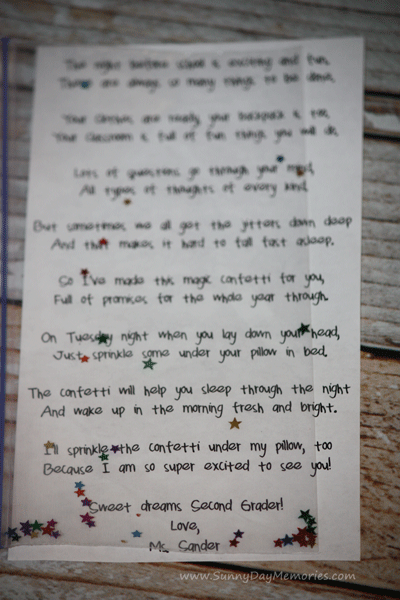 The night before school is exciting and fun,
There are always so many things to be done.
Your clothes are ready, your backpack is too,
Your classroom is full of fun things you will do.
Lots of questions go through your mind,
All types of thoughts of every kind.
But sometimes we all get the jitters down deep
And that makes it hard to fall fast asleep.
So I've made this magic confetti for you,
Full of promises for the whole year through.
On Tuesday night when you lay down your head,
Just sprinkle some under your pillow in bed.
The confetti will help you sleep through the night
And wake up in the morning fresh and bright.
I'll sprinkle the confetti under my pillow, too
Because I am so super excited to see you!
Sweet dreams Second Grader!
Love,
Ms. Sander
www.SunnyDayMemories.com